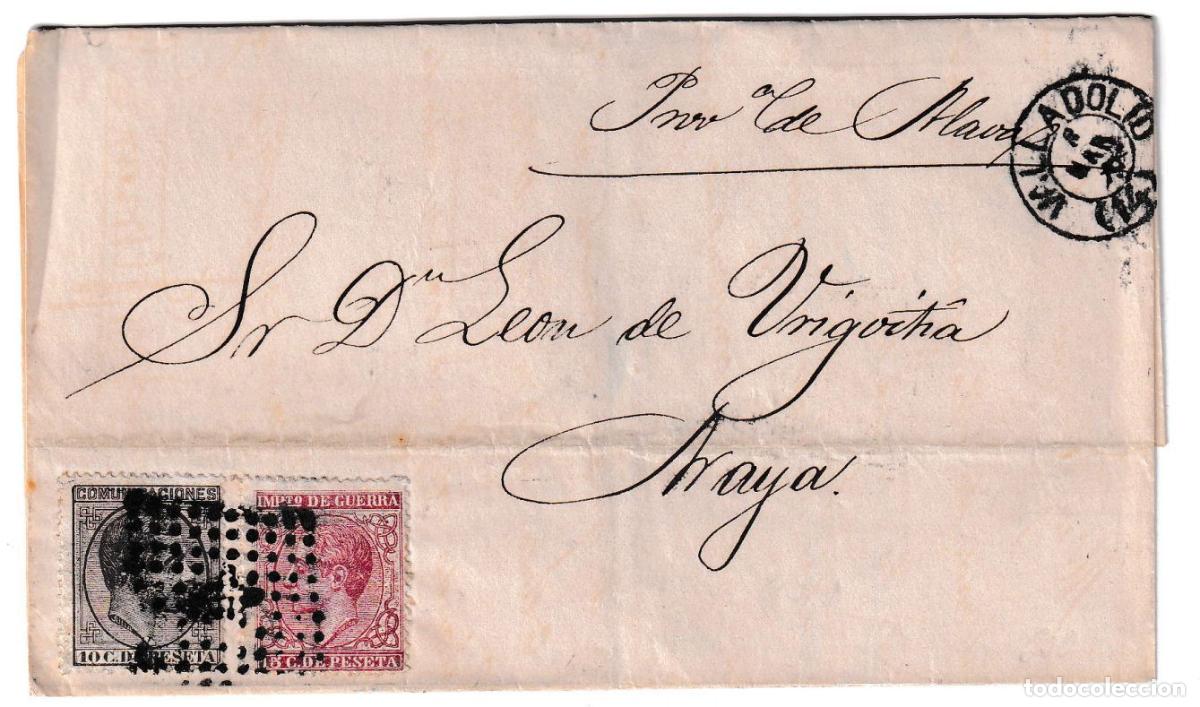 Provª de Alava
VALLADOLID
(15)
Sr Dn Leon de Urigoitia
Araya.
COMUNICACIONES
10 C. DE PESETA
IMPTO DE GUERRA
15 C. DE PESETA
todocoleccion